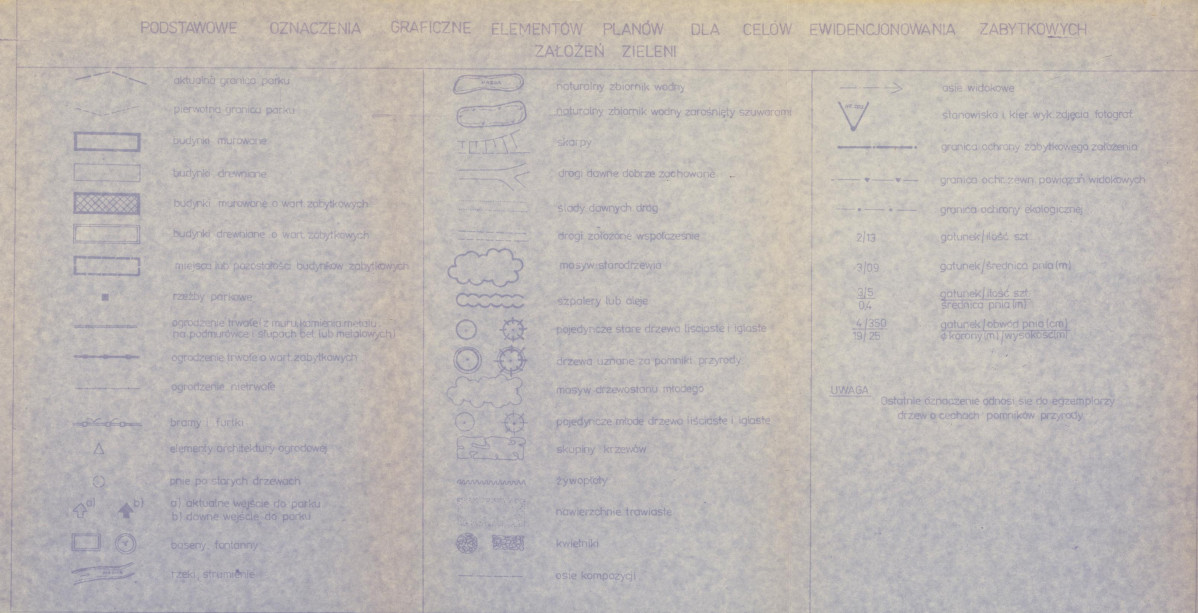 PODSTAWOWE OZNACZENIA GRAFICZNE ELEMENTÓW PLANÓW DLA CELÓW EWIDENCJONOWANIA ZABYTKOWYCH
ZAŁOŻEŃ ZIELENI
aktualna granica parku
pierwotna granica parku
budynki murowane
budynki drewniane
budynki murowane o wart zabytkowych
budynki drewniane o wart. zabytkowych
miejsca lub pozostałości budynków zabytkowych
rzeźby parkowe
ogrodzenie trwałe z muru, kamienia, metalu
na podmurówce i słupach bet lub metalowych)
ogrodzenie trwałe o wart zabytkowych
ogrodzenie nietrwałe
bramy i furtki
elementy architektury ogrodowej
pnie po starych drzewach
a) b)
a) aktualne wejście do parku
b) dawne wejście do parku
baseny, fontanny
rzeki, strumienie
naturalny zbiornik wodny
naturalny zbiornik wodny zarośnięty szuwarami
skarpy
drogi dawne dobrze zachowane
ślady dawnych dróg
drogi założone współcześnie
masyw starodrzewia
szpalery lub aleje
pojedyncze stare drzewa liściaste i iglaste
drzewa uznane za pomniki przyrody
masyw drzewostanu młodego
pojedyncze młode drzewa liściaste i iglaste
skupiny krzewów
żywopłoty
nawierzchnie trawiaste
kwietniki
osie kompozycji
osie widokowe
stanowiska i kier wyk zdjęcia fotograf
granica ochrony zabytkowego założenia
granica ochr. zewn. powiązań widokowych
granica ochrony ekologicznej
2/13 gatunek/ilość szt.
3/09 gatunek/średnica pnia (m)
3/5 gatunek/ilość szt.
0,4 średnica pnia (m)
4/350 gatunek/obwód pnia (cm)
19/25 ø korony (m)/wysokość (m)
UWAGA
Ostatnie oznaczenie odnosi się do egzemplarzy
drzew o cechach pomników przyrody